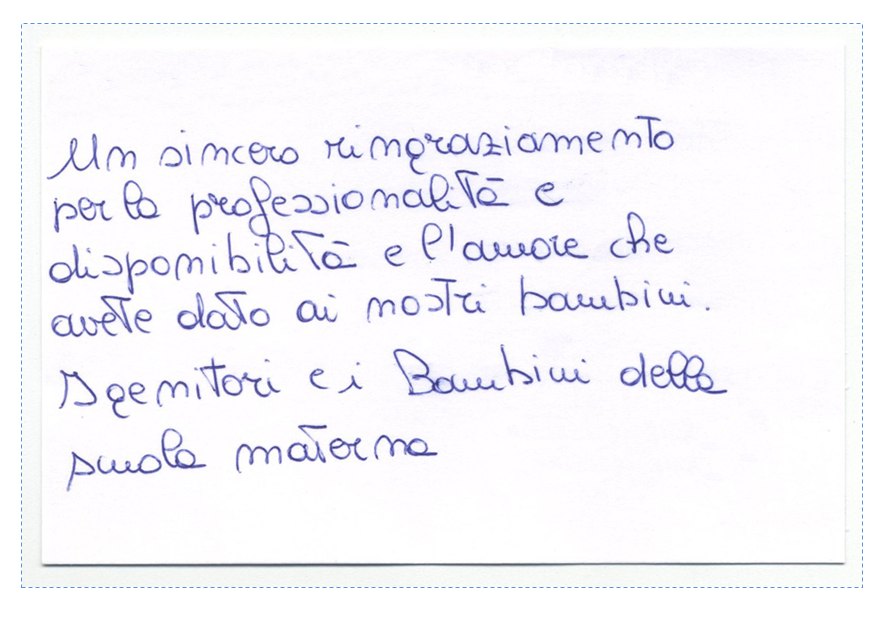 Un sincero ringraziamento
per la professionalità e
disponibilità e l'amore che
avete dato ai nostri bambini.
I genitori e i Bambini della
scuola materna